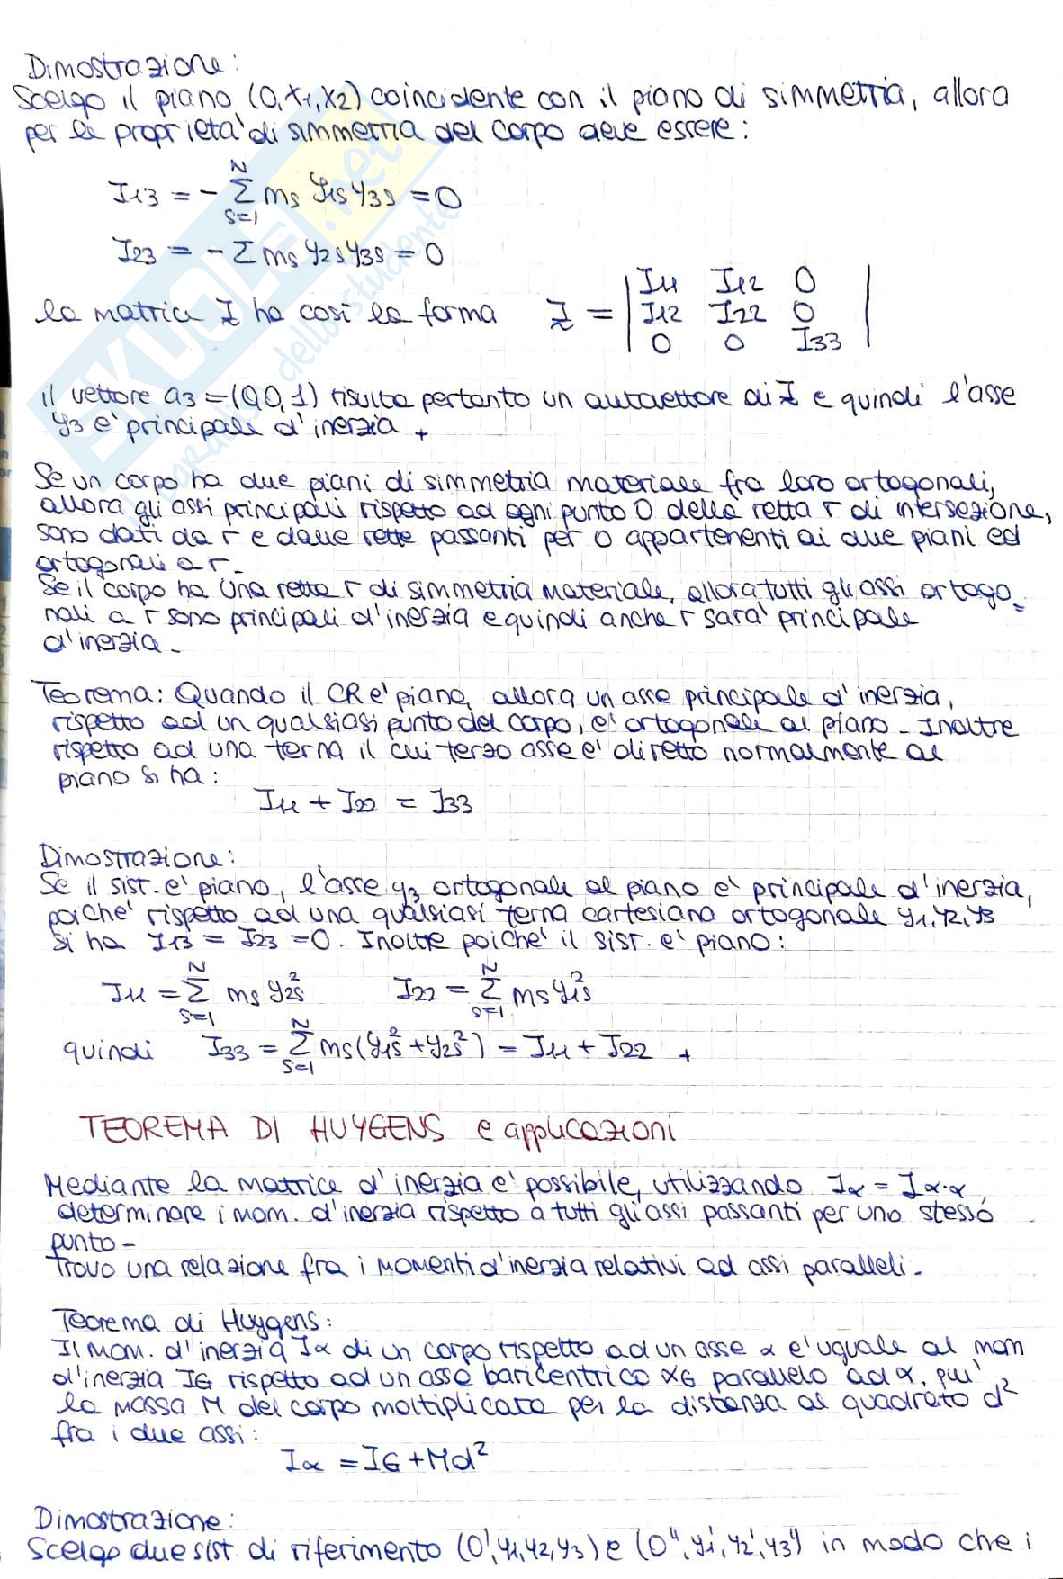 Dimostrazione:
Scelgo il piano (O,x1,x2) coincidente con il piano di simmetria, allora
per la proprietà di simmetria del corpo deve essere:
I13 = - N Σ s=1 ms y1s y3s = 0
I23 = - Σ ms y2s y3s = 0
la matrice I ha così la forma I = | I11 I12 0 |
| I12 I22 0 |
| 0 0 I33 |
il vettore a3 = (0,0,1) risulta pertanto un autovettore di I e quindi l'asse
y3 e' principale d'inerzia +
Se un corpo ha due piani di simmetria materiale fra loro ortogonali,
allora gli assi principali rispetto ad ogni punto O della retta r di intersezione,
sono dati da r e dalle rette passanti per O appartenenti ai due piani ed
ortogonali a r.
Se il corpo ha una retta r di simmetria materiale, allora tutti gli assi ortogo=
nali a r sono principali d'inerzia e quindi anche r sara' principale
d'inerzia.
Teorema: Quando il CR e' piano, allora un asse principale d'inerzia,
rispetto ad un qualsiasi punto del corpo, e' ortogonale al piano. Inoltre
rispetto ad una terna il cui terzo asse e' diretto normalmente al
piano si ha:
I11 + I22 = I33
Dimostrazione:
Se il sist. e' piano, l'asse y3 ortogonale al piano e' principale d'inerzia,
poiche' rispetto ad una qualsiasi terna cartesiana ortogonale y1,y2,y3
si ha I13 = I23 = 0. Inoltre poiche' il sist. e' piano:
I11 = N Σ s=1 ms y2s² I22 = N Σ s=1 ms y1s²
quindi I33 = N Σ s=1 ms(y1s² + y2s²) = I11 + I22 +
TEOREMA DI HUYGENS e applicazioni
Mediante la matrice d'inerzia e' possibile, utilizzando Iα = Iα·α,
determinare i mom. d'inerzia rispetto a tutti gli assi passanti per uno stesso
punto -
Trovo una relazione fra i momenti d'inerzia relativi ad assi paralleli.
Teorema di Huygens:
Il mom. d'inerzia Iα di un corpo rispetto ad un asse α e' uguale al mom
d'inerzia IG rispetto ad un asse baricentrico αG parallelo ad α, piu'
la massa M del corpo moltiplicata per la distanza al quadrato d²
fra i due assi:
Iα = IG + Md²
Dimostrazione:
Scelgo due sist. di riferimento (O',y1,y2,y3) e (O'',y1',y2',y3') in modo che i
SKUOLA.net
dello studente